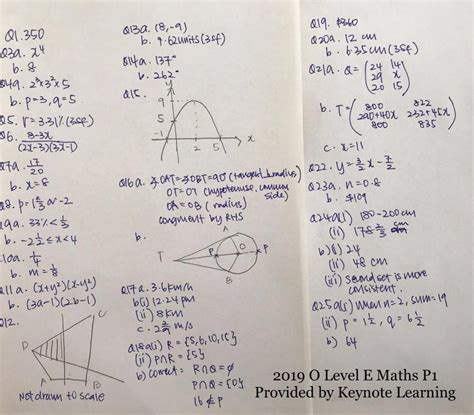 Q1. 350
Q3a. x⁴
b. 8
Q4a. 2³×3²×5
b. p=3, q=5
Q5. r=3.31% (3sf)
Q6. 8-3x
(2x-3)(3x-1)
Q7a. 17/20
b. x=8
ar-2
Q9a. 33⅓%
b. -2½≤x<4
b. m=⅛
Q11a. (x+y²)(x-y²)
b. (3a-1)(2b-1)
Q12.
D
C
A
B
Not drawn to scale
Q13a. (8,-9)
b. 9.62units (3sf)
Q14a. 137°
b. 262°
Q15.
y
9
5
-1
2
5
x
Q16a. ∠OAT=∠OBT=90° (tangent ⊥ radius)
OT=OT (hypotenuse, common side)
OA=OB (radius)
congruent by RHS
b.
A
T
P
O
P
B
Q17a. 3.6km/h
b(i) 12.24pm
(ii) 8km
m/s
Q18a(i) R={5,6,10,15}
(ii) P∩R={5}
b) correct:
R∩Q=∅
P∩Q={0}
16∉P
Q19. $360
Q20a. 12 cm
b. 6.35cm (3sf)
Q21a. Q= (24 14
29 x
20 15)
b. T= (800 822
290+40x 232+45x
800 835)
c. x=11
Q22. y=3/2x-7/2
Q23a. n=0.8
b. $109
Q24a(i) 180-200cm
(ii) 178⅔ cm
b)(i) 24
(ii) 48 cm
(iii) Second set is more
consistent.
Q25a(i) when n=2, sum=19
(ii) p=1½, q=6½
b) 64
2019 O Level E Maths P1
Provided by Keynote Learning